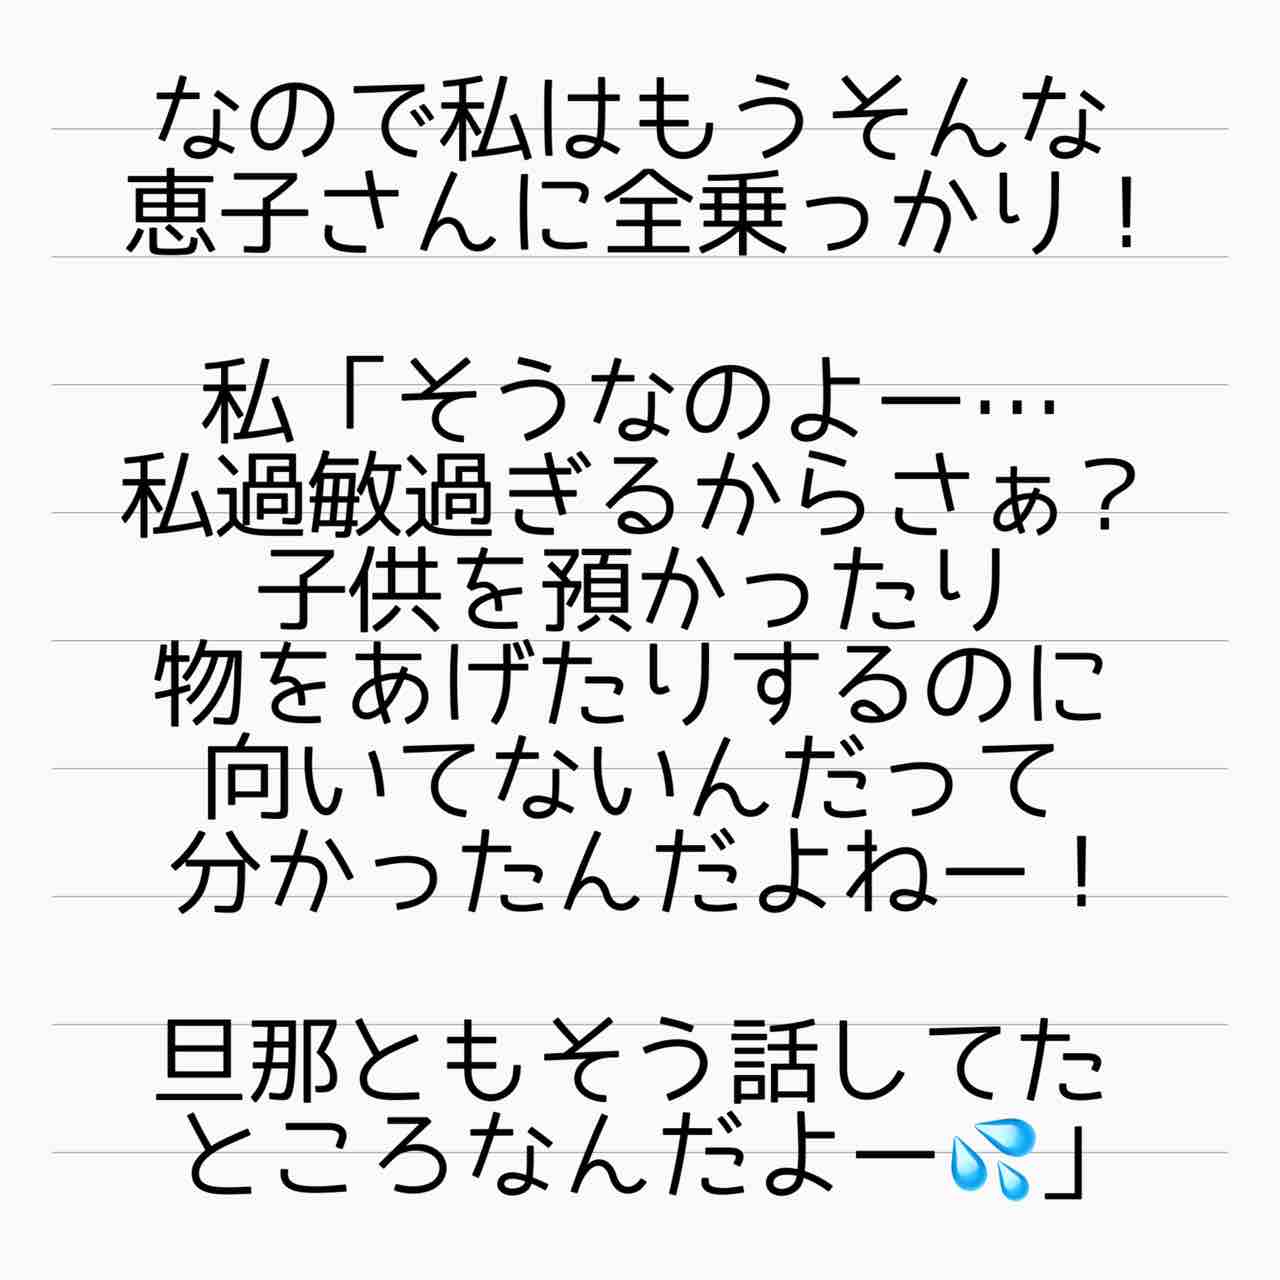 なので私はもうそんな
恵子さんに全乗っかり！
私「そうなのよー…
私過敏過ぎるからさぁ？
子供を預かったり
物をあげたりするのに
向いてないんだって
分かったんだよねー！
旦那ともそう話してた
ところなんだよー💦」